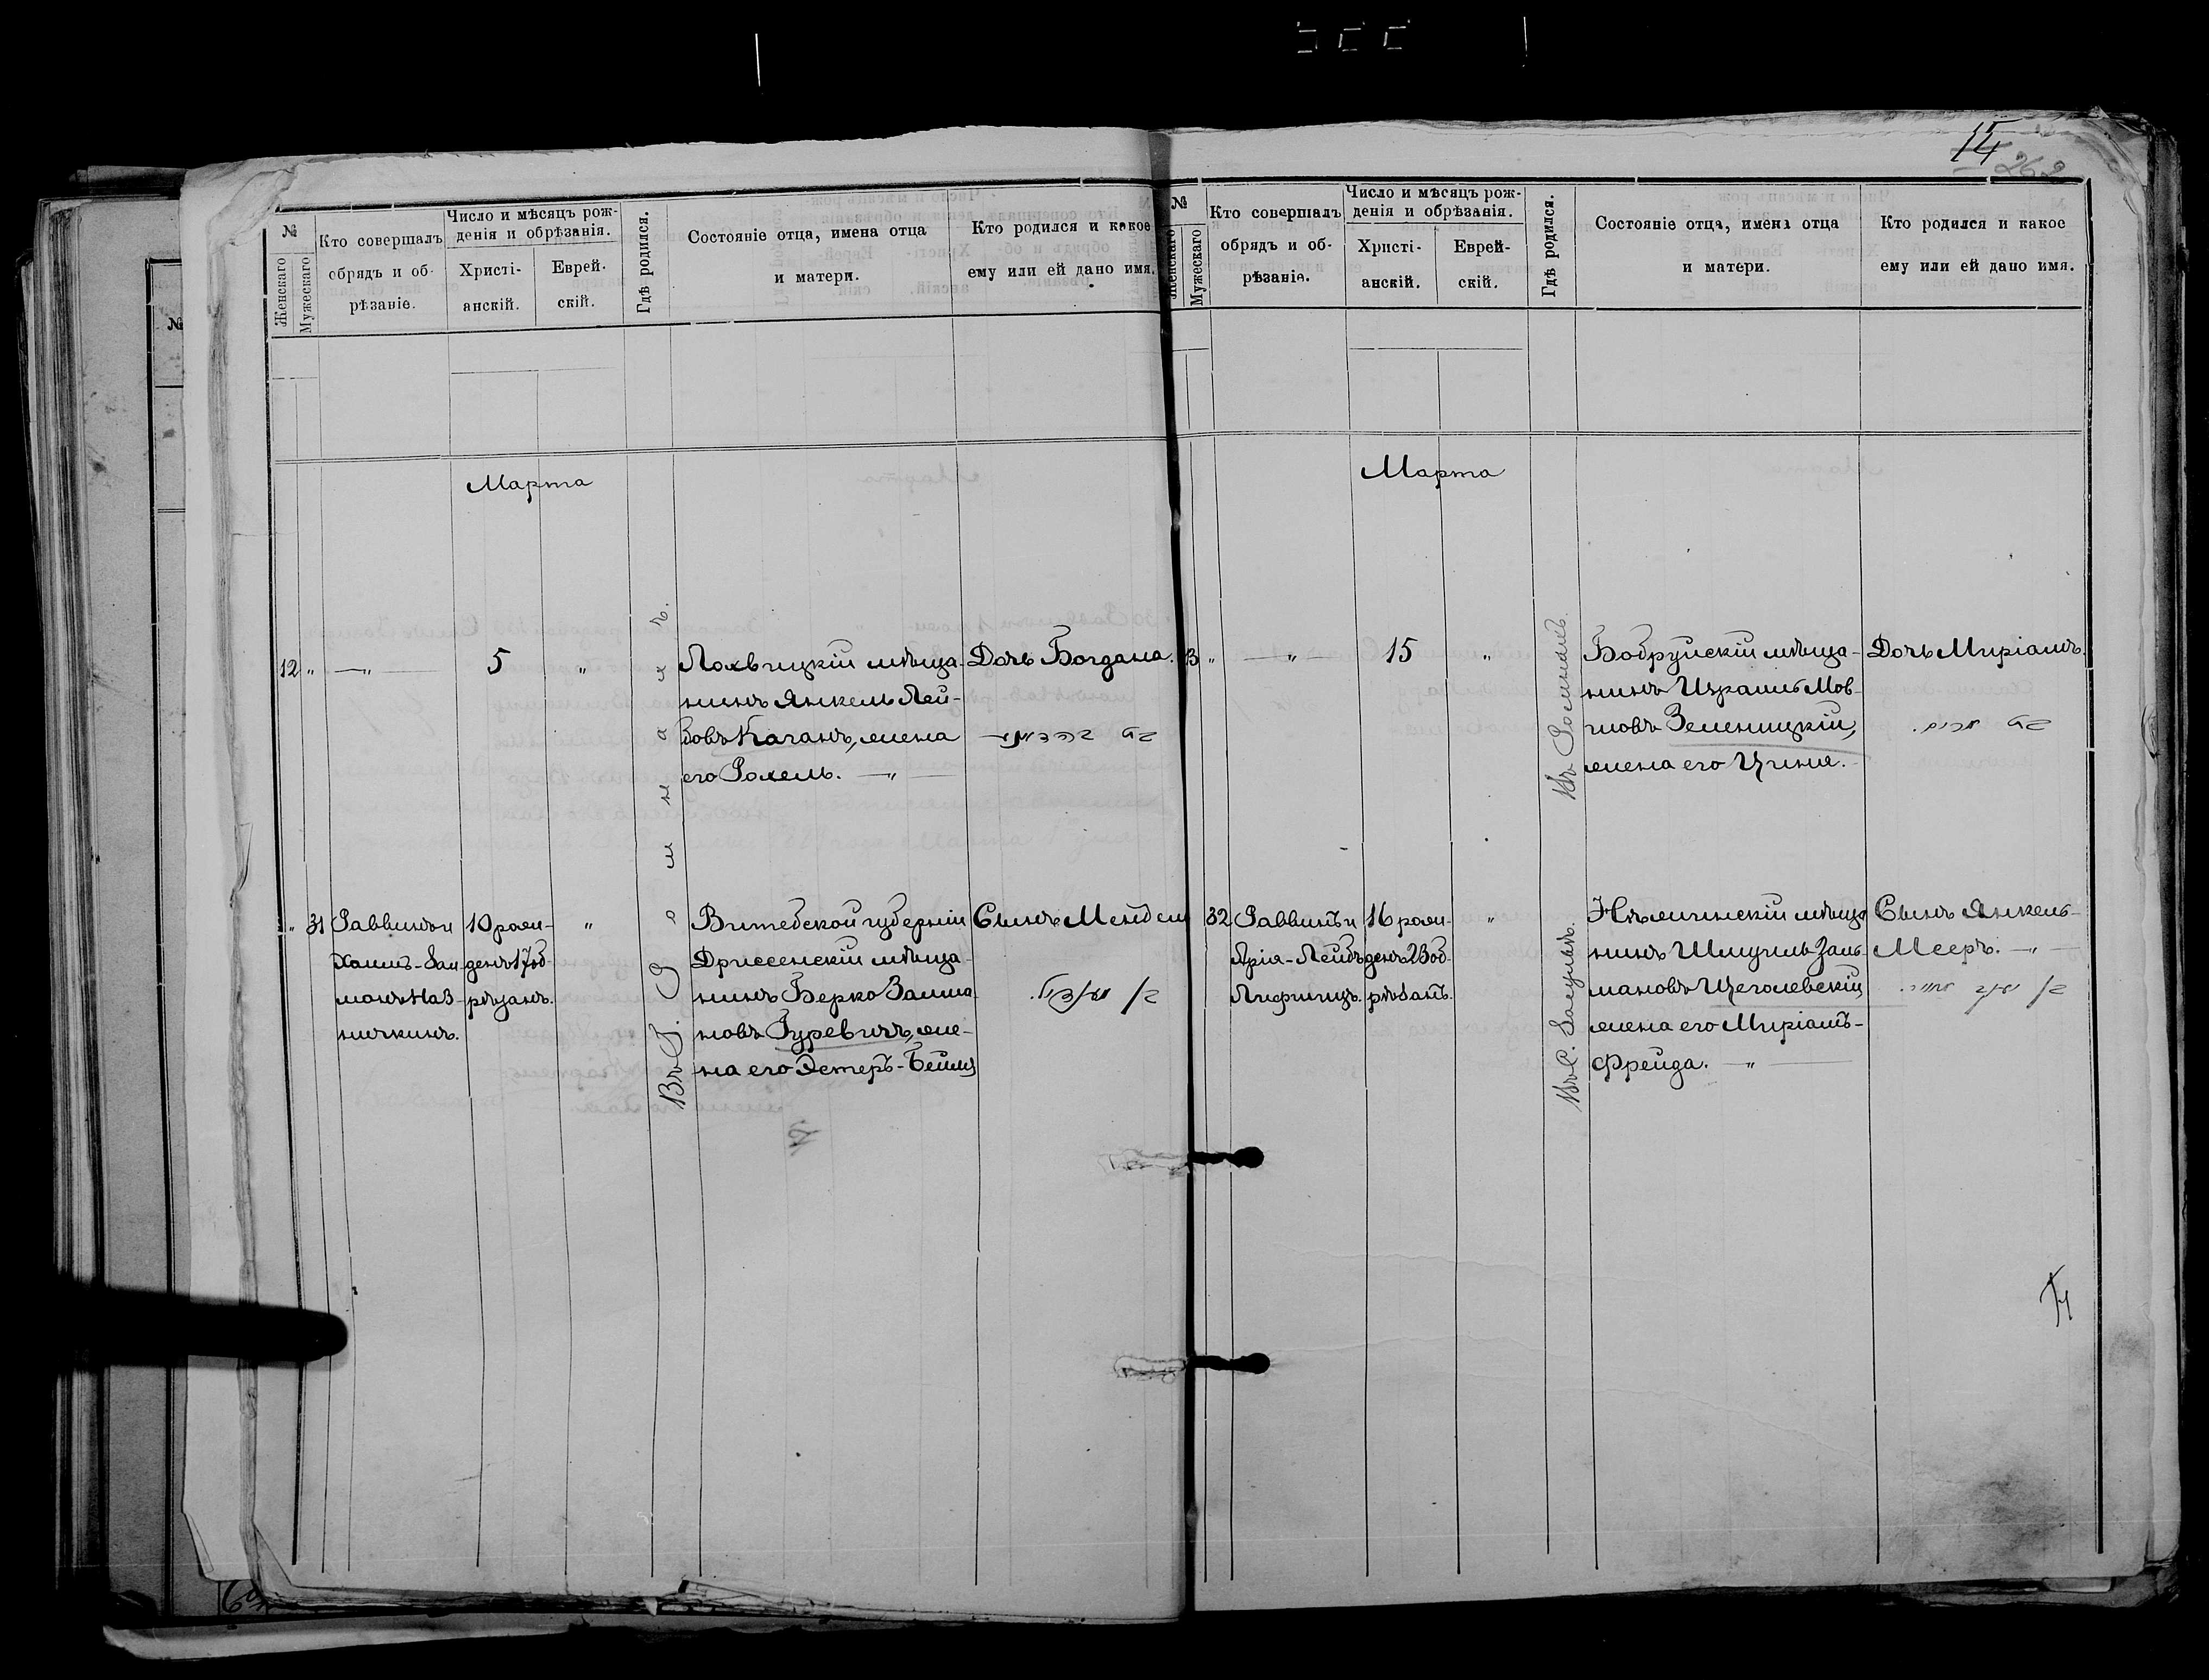 15
14
262
№
Женскаго
Мужескаго
Кто совершалъ
обрядъ и об-
рѣзаніе.
Число и мѣсяцъ рож-
денія и обрѣзанія.
Христі-
анскій.
Еврей-
скій.
Гдѣ родился.
Состояніе отца, имена отца
и матери.
Кто родился и какое
ему или ей дано имя.
Марта
12 " — " — 5 "
Лохвицкій мѣща-
нинъ Янкель Лей-
бовъ Каганъ, жена
его Рохель. — " —
Дочь Богдана.
בת
" 31
Раввинъ и
Хаимъ-Зал-
манъ Наз-
ничкинъ.
10 рож-
денъ 17 об-
рѣзанъ.
"
Въ г. Ромнахъ.
Витебской губерніи
Дриссенскій мѣща-
нинъ Берко Залма-
новъ Гуревичъ, же-
на его Эстеръ-Бейля
Сынъ Мендель
בן מענדיל.
№
Женскаго
Мужескаго
Кто совершалъ
обрядъ и об-
рѣзаніе.
Число и мѣсяцъ рож-
денія и обрѣзанія.
Христі-
анскій.
Еврей-
скій.
Гдѣ родился.
Состояніе отца, имена отца
и матери.
Кто родился и какое
ему или ей дано имя.
Марта
13 " — " — 15 "
Въ Ромнахъ.
Бобруйскій мѣща-
нинъ Израиль Мов-
шовъ Зеленицкій,
жена его Ципе.
Дочь Миріамъ.
בת מרים.
32
Раввинъ и
Арія-Лейбъ
Лифшицъ.
16 рож-
денъ 23 об-
рѣзанъ.
"
Въ С.
мѣща-
нинъ Шмуиль Заль-
мановъ Щеголевскій
жена его Миріамъ-
Фрейда. — " —
Сынъ Янкель-
Мееръ. — " —
בן יעקב מאיר.